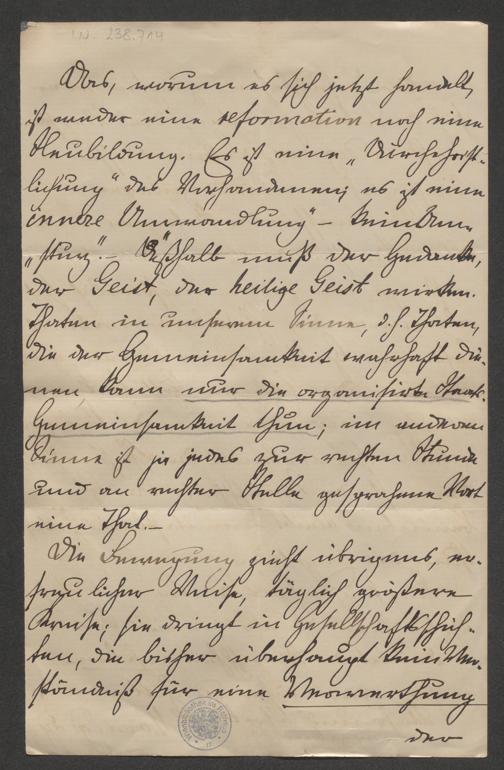 I.N. 238.714
Das, worum es sich jetzt handelt,
ist weder eine Reformation noch eine
Neubildung. Es ist eine „Durchchrist-
lichung" des Vorhandenen; es ist eine
innere Umwandlung" – kein „Um-
„sturz". – Deßhalb muß der Gedanke,
der Geist, der heilige Geist wirken.
Thaten in unserem Sinne, d. h. Thaten,
die der Gemeinsamkeit wahrhaft die-
nen, kann nur die organisirte Staats-
Gemeinsamkeit thun; im anderen
Sinne ist ja jedes zur rechten Stunde
und an rechter Stelle gesprochene Wort
eine That. –
Die Bewegung zieht übrigens, er-
freulicher Weise, täglich größere
Kreise; sie dringt in Gesellschaftsschich-
ten, die bisher überhaupt kein Ver-
ständniß für eine Verwerthung
der